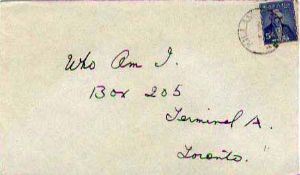 Who Am I.
Box 205
Terminal A.
Toronto.